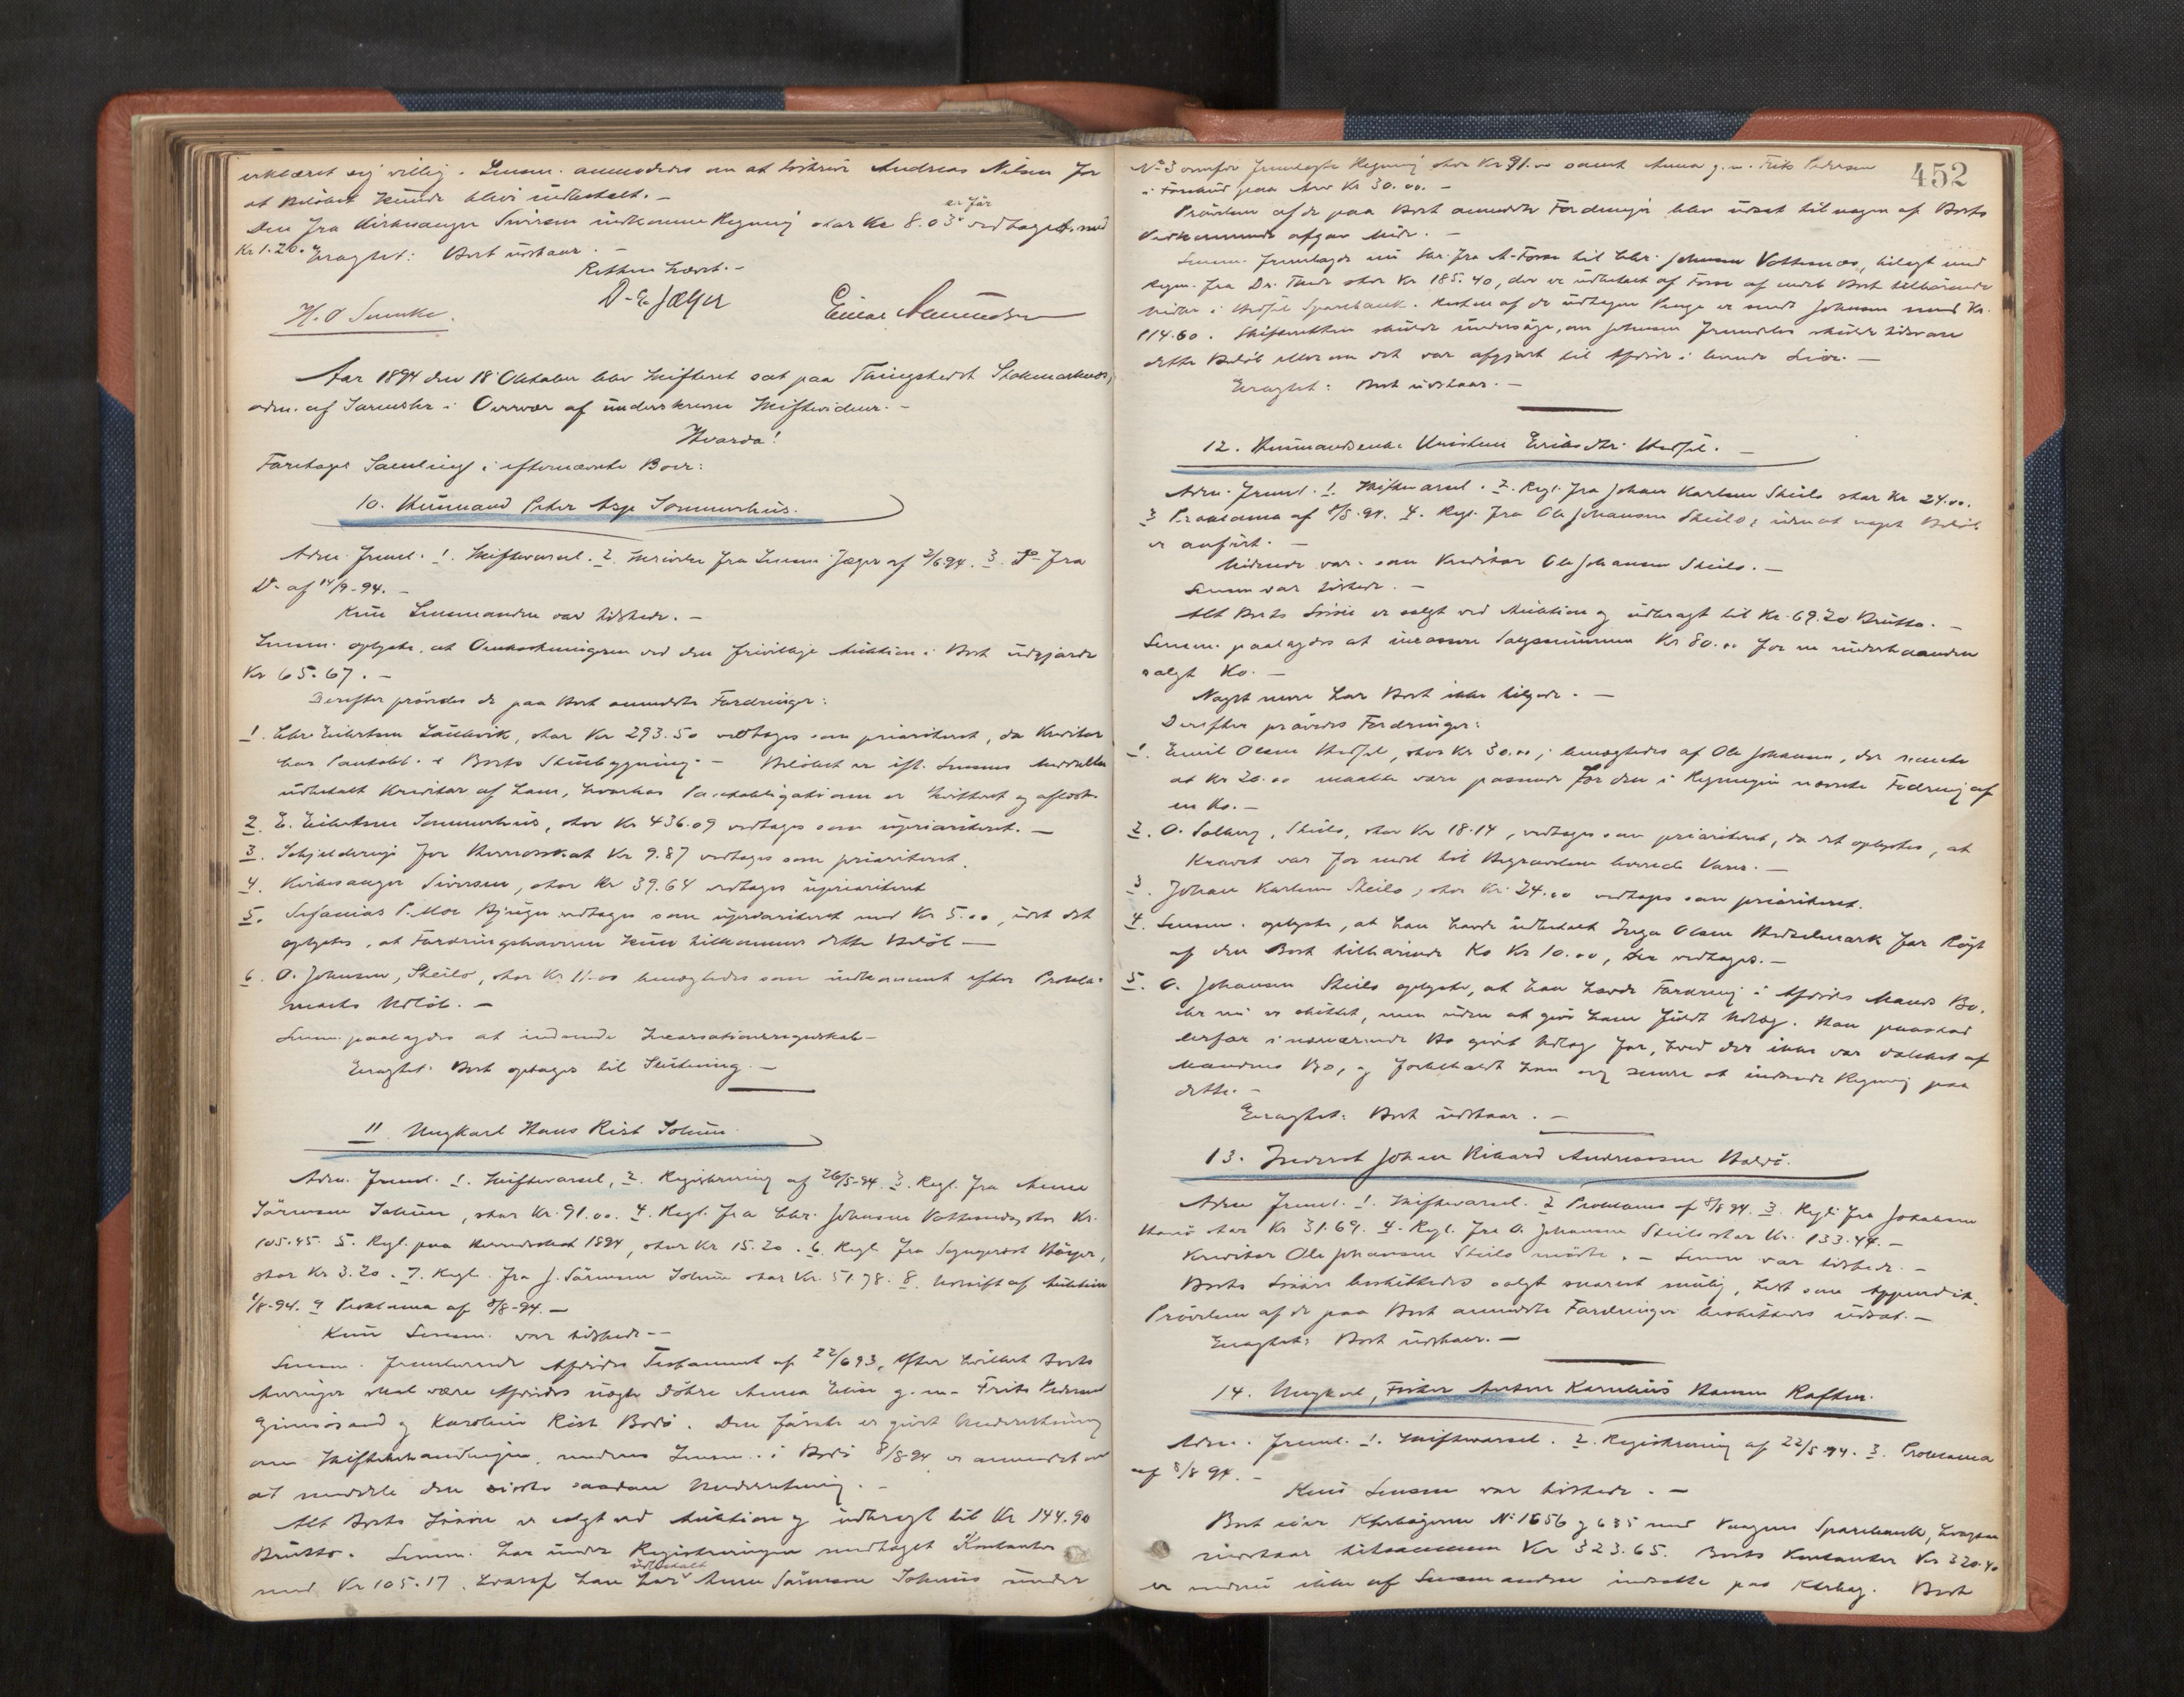 erklæret sig villig. Lensm. anmodedes om at tilskrive Andreas Nilsen for
at Beløbet kunde blive udbetalt. –
er før
Den fra Kirkesanger Sivirsen indkomne Regning stor Kr 8.03 vedtaget med
Kr 1.20. Eragtet: Boet udstaar. –
Retten hævet. –
H. O Simske.
D. C. Jæger
Einar Amundsen
Aar 1894 den 18 Oktober blev Skifteret sat paa Thingstedet Stokmarknæs,
adm. af Sorenskr. i Overvær af underskrevne Skiftevidner. –
Hvorda!
Foretoges Samling i efternævnte Boer:
10. Husmand Peter Aspe Sommerhus.
Adm. freml. 1. Skiftevarsel. 2. Skrivelse fra Lensm. Jæger af 2/6 94. 3. Do fra
Do af 14/9-94. –
Kun Lensmanden var tilstede. –
Lensm. oplyste, at Omkostningerne ved den frivillige Auktion i Boet udgjorde
Kr 65.67. –
Derefter prøvedes de paa Boet anmeldte Fordringer:
1. Chr. Eilertsen Laukvik, stor Kr 293.50 vedtoges som prioriteret, da Kreditor
har Pantobl. i Boets Stuebygning. – Beløbet er ifl. Lensms Meddelelse
udbetalt Kreditor af ham, hvorhos Pantobligationen er kvitteret og aflæst.
2. E. Eilertsen Sommerhus, stor Kr 436.09 vedtoges som uprioriteret. –
3. Schjelderup for Herredsskat Kr 9.87 vedtoges som prioriteret.
4. Kirkesanger Sivirsen, stor Kr 39.64 vedtoges uprioriteret
5. Sefanias P. Moe vedtoges som uprioriteret med Kr 5.00, idet det
oplystes, at Fordringshaveren kun tilkommer dette Beløb –
6. O. Johansen, Skeilo, stor Kr. 11.00 benegtedes som indkommet efter Prokla-
maets Udløb. –
Lensm. paalagdes at indsende Incassationsregnskab –
Eragtet: Boet optages til Slutning –
11. Ungkarl Hans Rist Tohun.
Adm. freml. 1. Skiftevarsel, 2. Registrering af 26/5-94. 3. Regl. fra Anna
Sørensen Tohun, stor Kr. 91.00. 4. Regl. fra Chr. Johnsen Vottesnæs, stor Kr.
105.45. 5. Regl. paa Herredsskat 1894, stor Kr 15.20. 6. Regl. fra Sogneprest Høyer,
stor Kr 3.20. 7. Regl. fra J. Sørensen Tohun stor Kr. 51.78. 8. Udskrift af Auktion
1/8-94. 9 Proklama af 8/8-94. –
Kun Lensm. var tilstede –
Lensm. fremleverede Afdødes Testament af 22/6 93, efter hvilket Boets
Arvinger skal være Afdødes uægte Døtre Anna Elise g. m. Frits Pedersen
Grimsøsand og Karoline Rist Bodø. Den første er givet Underretning
om Skiftebehandlingen, medens Lensm. i Bodø 8/8-94 er anmodet om
at meddele den sidste saadan Underretning. –
Alt Boets Løsøre er solgt ved Auktion og udbragt til Kr 144.90
Brutto. Lensm. har under Registreringen modtaget Kontanter
udbetalt
med Kr 105.17, hvoraf han har Anna Sørensen Tohuns under
452
No 3 ovenfor fremlagte Regning stor Kr 91.00 samt Anna g. m. Frits Pedersen
i Forskud paa Arv Kr 30.00. –
Prøvelsen af de paa Boet anmeldte Fordringer blev udsat til nogen af Boets
Vedkommende afgav Møde. –
Lensm. fremlagde nu Skr. fra A. Forse til Chr. Johnsen Vottesnæs, bilagt med
Regn. fra Dr. Thode stor Kr 185.40, der er udbetalt af Forse af endel Boet tilhørende
Midler i Hadsel Sparebank. Resten af de udtagne Penge er sendt Johnsen med Kr.
114.60. Skifteretten skulde undersøge, om Johnsen fremdeles skulde tilsvare
dette Beløb eller om det var afgjort til Afdøde i levende Live. –
Eragtet: Boet udstaar. –
12. Husmandsenke Kristine Eriksdtr. Hadsel. –
Adm. freml. 1. Skiftevarsel. 2. Regl. fra Johan Karlsen Skeilo stor Kr 24.00.
3 Proklama af 8/8.94. 4. Regl. fra Ole Johansen Skeilo; uden at noget Beløb
er anført. –
Mødende var som Kreditor Ole Johansen Skeilo. –
Lensm var tilstede. –
Alt Boets Løsøre er solgt ved Auktion og udbragt til Kr. 69.20 Brutto. –
Lensm. paalagdes at incassere Salgssummen Kr 80.00 for en underhaanden
solgt Ko. –
Noget mere har Boet ikke tilgode. –
Derefter prøvedes Fordringer:
1. Emil Olsen Hadsel, stor Kr 30.00; benægtedes af Ole Johansen, der mente
at Kr 20.00 maatte være passende for den i Regningen nævnte Fodring af
en Ko. –
2. O. Solberg, Skeilo, stor Kr 18.14, vedtoges som prioriteret, da det oplystes, at
Kravet var for med til Begravelsen leverede Varer. –
3 Johan Karlsen Skeilo, stor Kr. 24.00 vedtoges som prioriteret.
4. Lensm. oplyste, at han havde udbetalt Inga Olsen Hadselmark for Røgt
af den Boet tilhørende Ko Kr 10.00, der vedtoges. –
5. O. Johansen Skeilo oplyste, at han havde Fordring i Afdødes Mands Bo,
der nu er sluttet, men uden at give ham fuldt Udlæg. Han paastod
derfor i nærværende Bo givet Udlæg for, hvad der ikke var dækket af
Mandens Bo, og forbeholdt han sig senere at indsende Regning paa
dette. –
Eragtet: Boet udstaar. –
13. Inderst Johan Rikard Andreassen Holdø.
Adm freml. 1. Skiftevarsel. 2 Proklama af 8/8 94. 3. Regl. fra Johnsen
Hanø stor Kr 31.69. 4. Regl. fra O. Johansen Skeilo stor Kr. 133.44. –
Kreditor Ole Johansen Skeilo mødte. – Lensm var tilstede. –
Boets Løsøre besluttedes solgt snarest mulig, helst som Appendix.
Prøvelsen af de paa Boet anmeldte Fordringer besluttedes udsat. –
Eragtet: Boet udstaar. –
14. Ungkarl, Fisker Anton Kornelius Hansen Raften.
Adm. freml. 1. Skiftevarsel. 2. Registrering af 22/5 94. 3. Proklama
af 8/8 94. –
Kun Lensm var tilstede. –
Boet eier Ktrbøgerne No 1656 og 635 med Vaagens Sparebank, hvorpaa
indestaar tilsammen Kr 323.65. Boets Kontanter Kr 320.40
er endnu ikke af Lensmanden indsatte paa Ktrbog. Boet